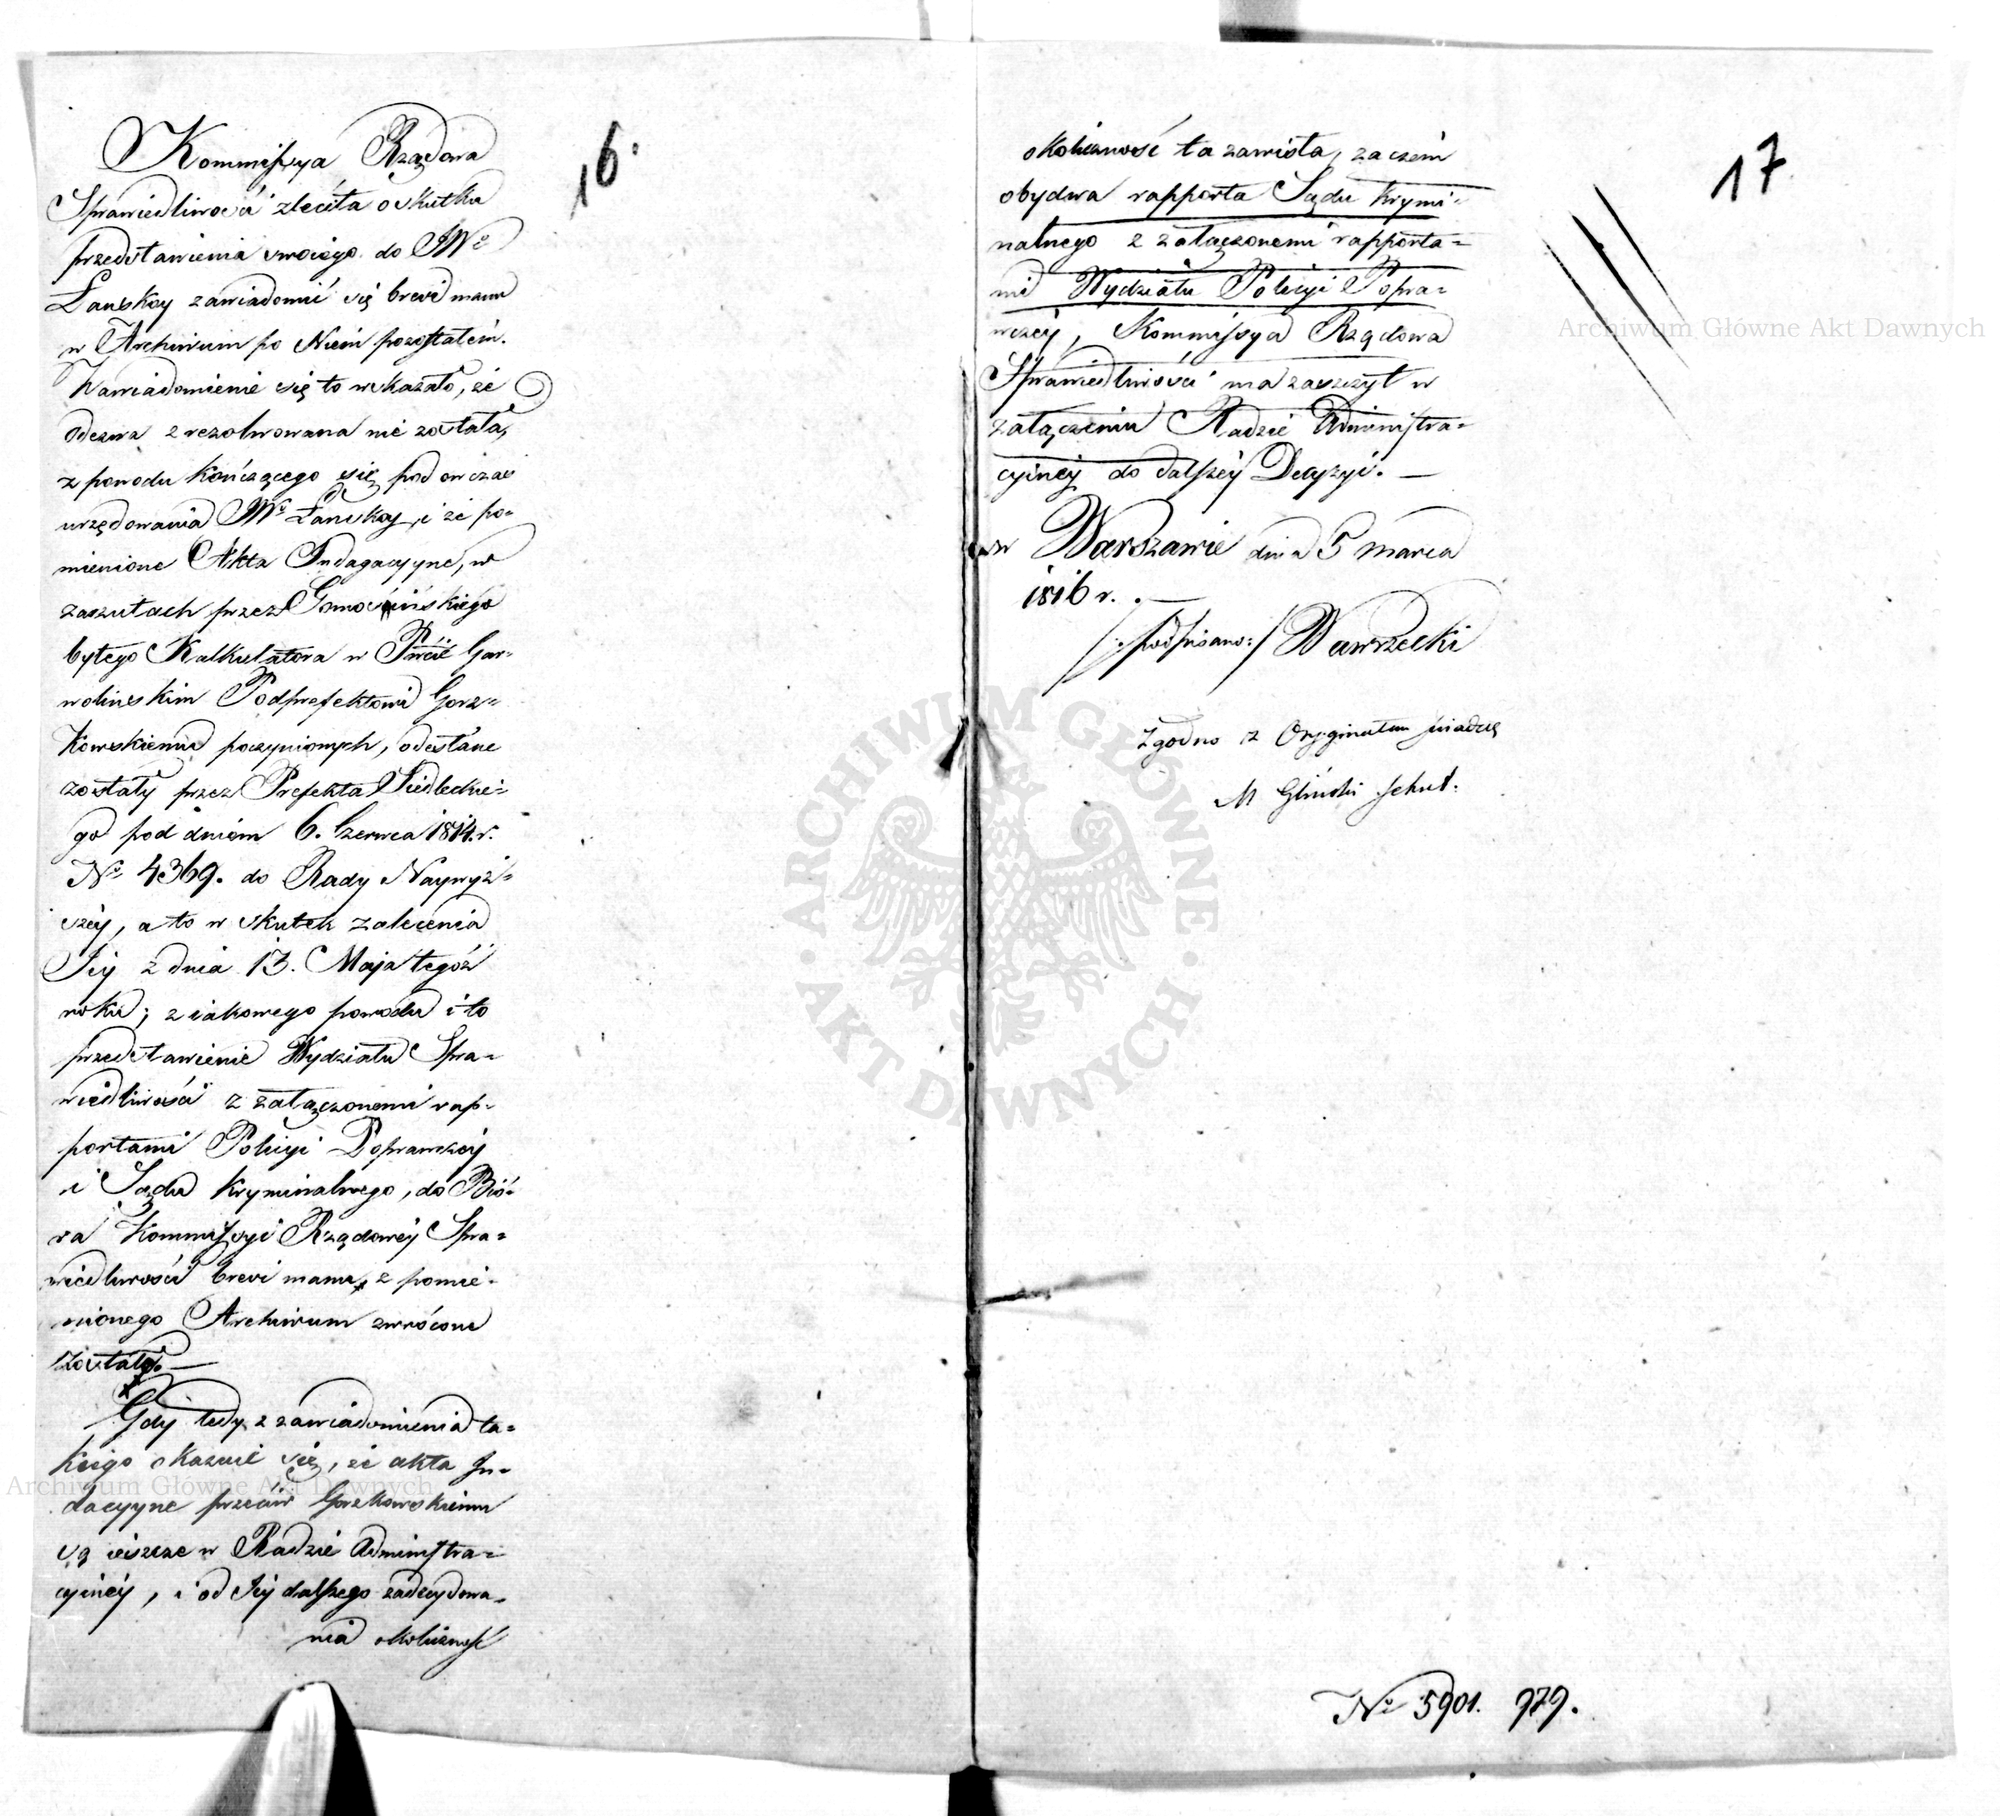 16.
Kommissya Rządowa
Sprawiedliwości zleciła o skutku
przedstawienia swoiego do JW.
Łanskoy zawiadomić się brevi manu
w Archiwum po Niem pozostałem.
Zawiadomienie się to wskazało, że
Odezwa zrezolwowana nie została,
z powodu kończącego się podówczas
urzędowania JW. Łanskoy, i że po=
mienione Akta Indagacyyne, w
zarzutach przez
byłego Kalkulatora w Powcie Gar=
wolinskim Podprefektowi Gorz=
kowskiemu poczynionych, odesłane
zostały przez Prefekta Siedleckie=
go pod dniem 6. Czerwca 1814. r.
No 4369. do Rady Naywyż=
szey, a to w skutek zalecenia
Jey z dnia 13. Maja tegoż
roku; z iakowego powodu i to
przedstawienie Wydziału Spra=
wiedliwości z załączonemi rap=
portami Policyi Poprawczey
i Sądu Kryminalnego, do Bió=
ra Kommissyi Rządowey Spra=
wiedliwości brevi manu, z pomie=
nionego Archiwum zwrócone
zostały. —
Gdy tedy z zawiadomienia ta=
kiego okazuie się, że akta In=
dacyyne przeciw Gorzkowskiemu
są ieszcze w Radzie Administra=
cyiney, i od Jey dalszego zadecydowa=
nia okoliczność
17
okoliczność ta zawisła, zaczem
obydwa rapporta Sądu Krymi=
nalnego z załączonemi rapporta=
mi Wydziału Policyi Popra=
wczey, Kommissya Rządowa
Sprawiedliwości ma zaszczyt w
załączeniu Radzie Administra=
cyiney do dalszey Decyzyi. —
w Warszawie dnia 5 marca
1816 r. —
/:podpisano:/ Wawrzecki
Zgodno z Oryginałem świadczę
M Gliński Sekret.
No 5901. 979.
Archiwum Główne Akt Dawnych
Archiwum Główne Akt Dawnych
ARCHIWUM GŁÓWNE AKT DAWNYCH